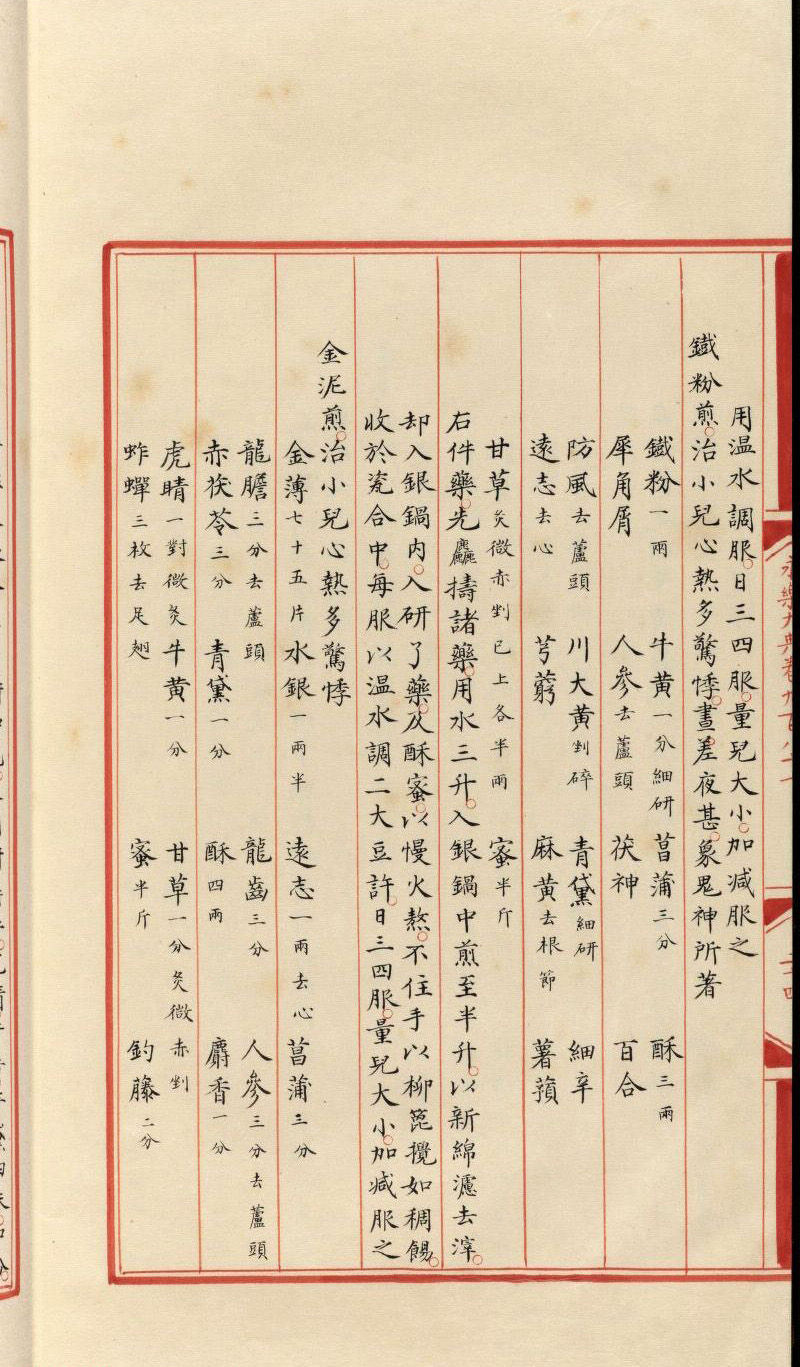 用温水調服日三四服量兒大小加减服之
鐵粉煎治小兒心熱多驚悸晝差夜甚象鬼神所著
鐵粉一兩 牛黄一分細研 菖蒲三分 酥三兩
犀角屑 人參去蘆頭 茯神 百合
防風去蘆頭 川大黄剉碎 青黛細研 細辛
遠志去心 芎藭 麻黄去根節 薯蕷
甘草炙微赤剉已上各半兩 蜜半斤
右件藥先麤擣諸藥用水三升入銀鍋中煎至半升以新綿濾去滓
却入銀鍋内入研了藥及酥蜜以慢火熬不住手以柳篦攪如稠餳
收於瓷合中每服以温水調二大豆許日三四服量兒大小加减服之
金泥煎治小兒心熱多驚悸
金薄七十五片 水銀一兩半 遠志一兩去心 菖蒲三分
龍膽三分去蘆頭 龍齒三分 人參三分去蘆頭
赤茯苓三分 青黛一分 酥四兩 麝香一分
虎睛一對微炙 牛黄一分 甘草一分炙微赤剉
蚱蟬三枚去足翅 蜜半斤 釣藤二分
永樂大典卷九百八十一
二十四